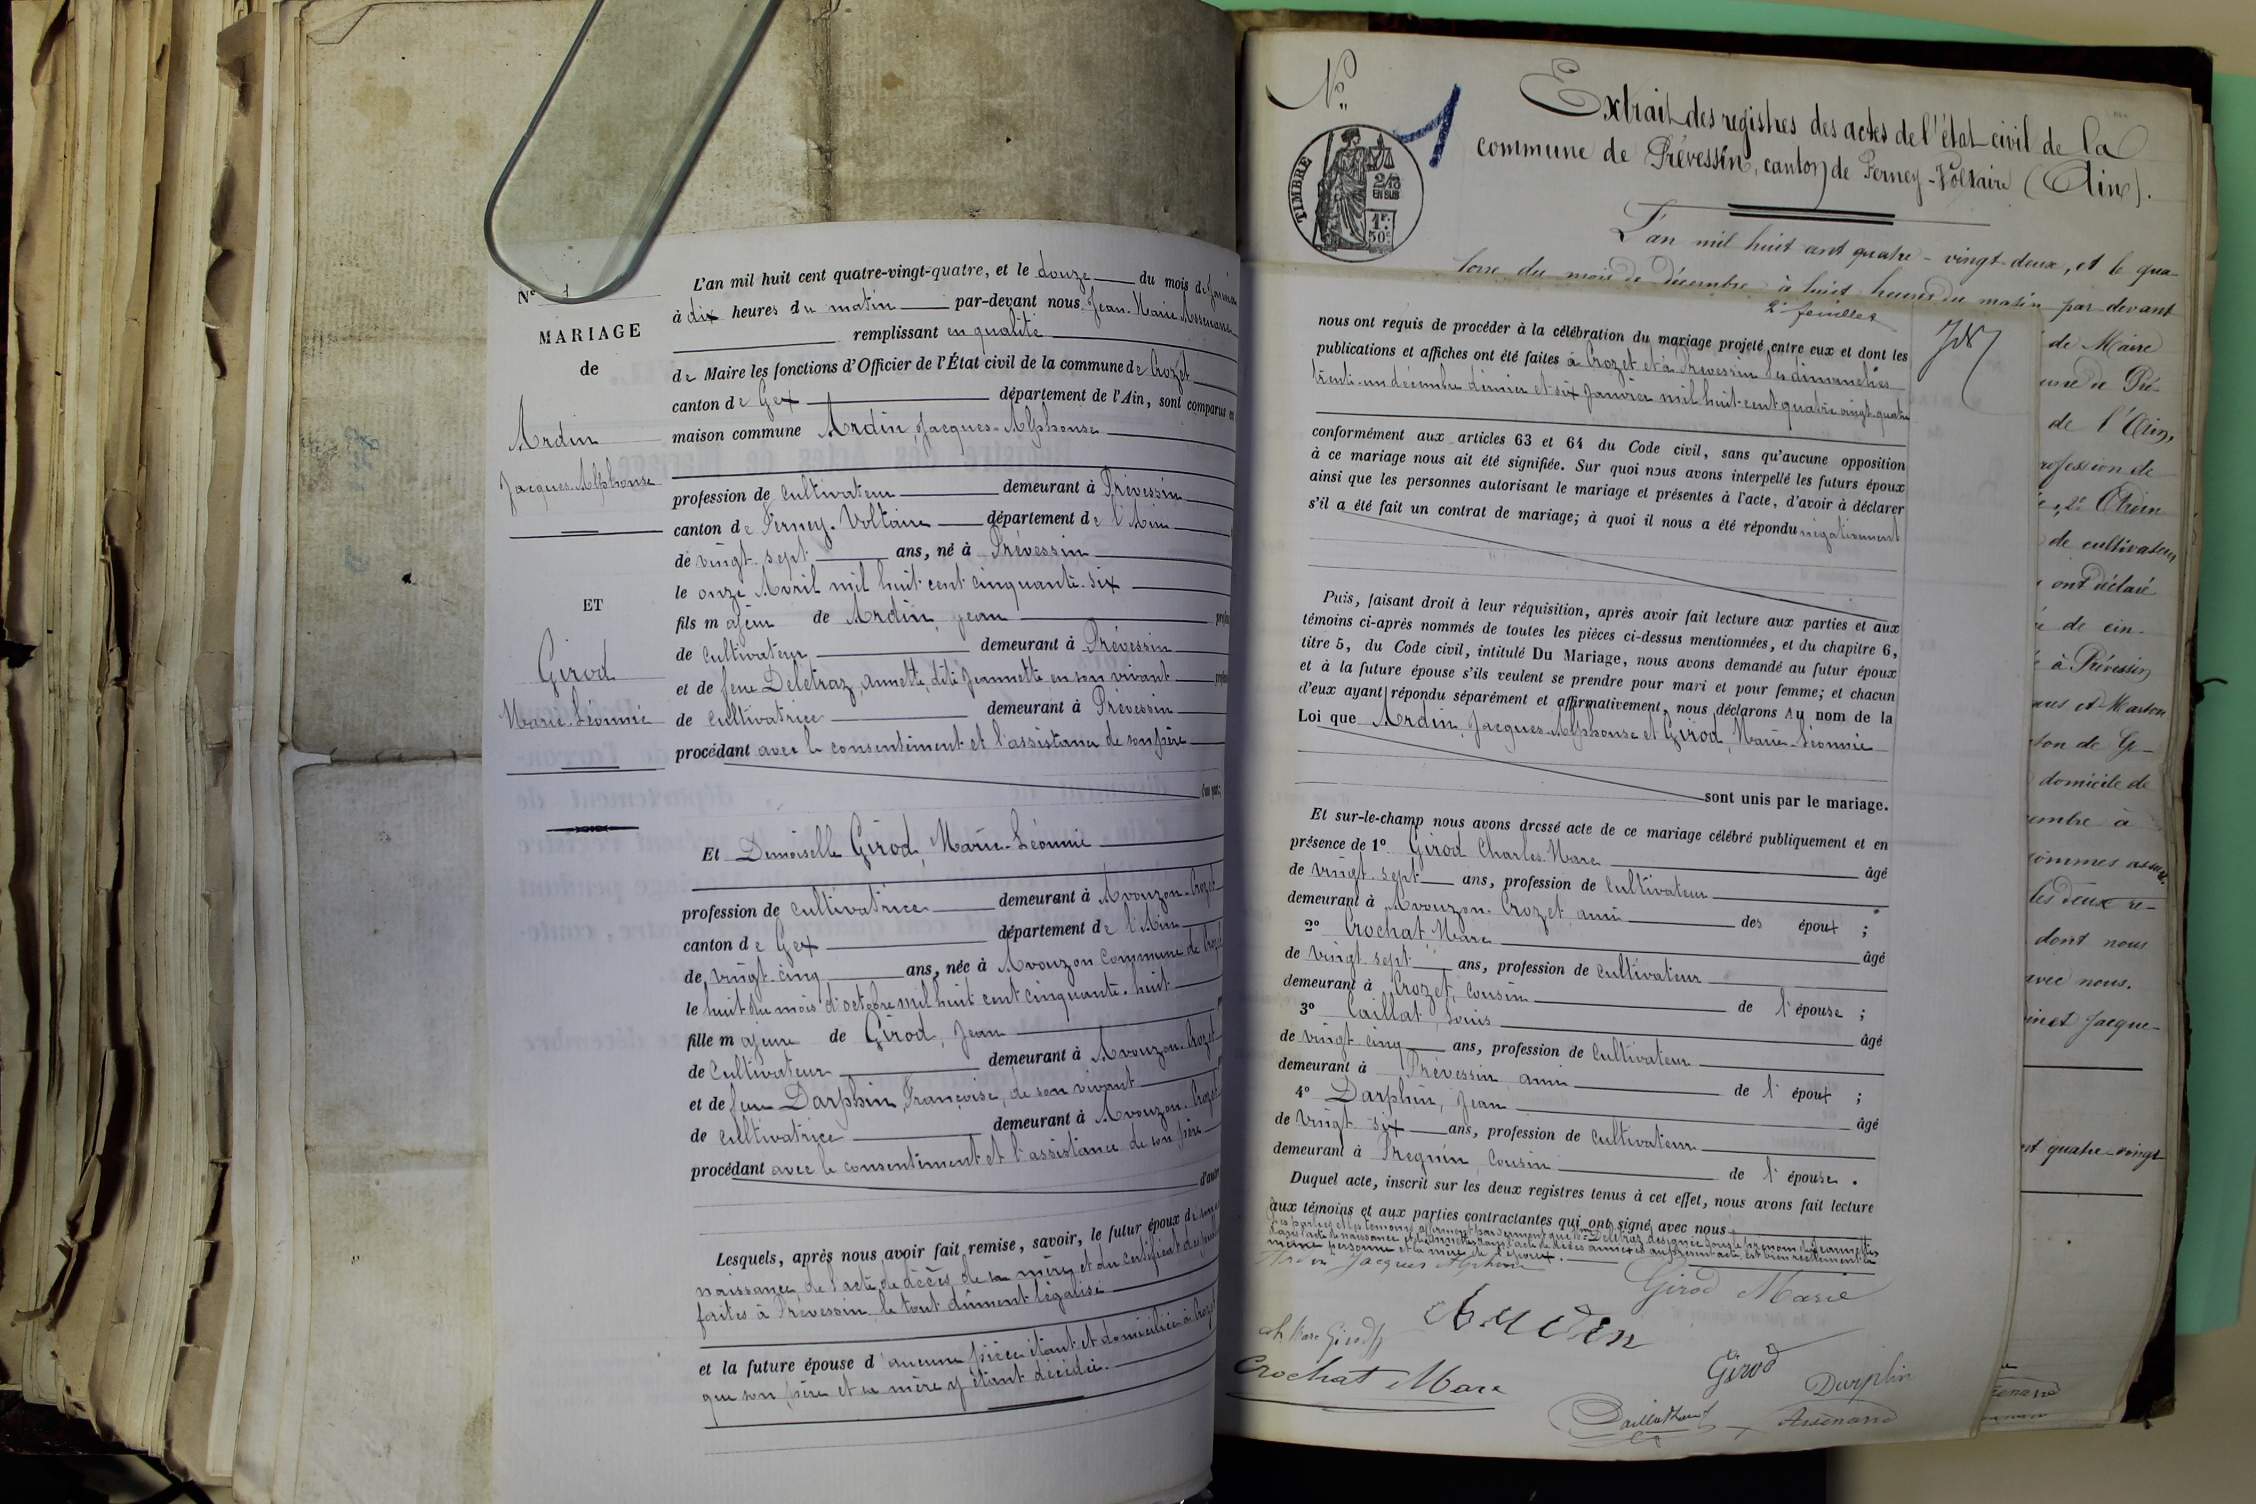 N° 1
MARIAGE
de
Ardin
Jacques-Alphonse
ET
Girod
Marie-Léonnie
L'an mil huit cent quatre-vingt-quatre, et le douze du mois de
à dix heures du matin par-devant nous Jean-Marie
remplissant en qualité
de Maire les fonctions d'Officier de l'État civil de la commune de Crozet
canton de Gex département de l'Ain, sont comparus en
maison commune Ardin, Jacques-Alphonse
profession de cultivateur demeurant à Prévessin
canton de Ferney-Voltaire département de l'Ain
de vingt-sept ans, né à Prévessin
le onze Avril mil huit cent cinquante-six
fils majeur de Ardin, Jean
de cultivateur demeurant à Prévessin
et de feue Deletraz, Annette, dite Jeannette en son vivant
de cultivatrice demeurant à Prévessin
procédant avec le consentement et l'assistance de son père
d'un part;
Et Demoiselle Girod, Marie-Léonnie
profession de cultivatrice demeurant à Avouzon-Crozet
canton de Gex département de l'Ain
de vingt-cinq ans, née à Avouzon commune de Crozet
le huit du mois d'octobre mil huit cent cinquante-huit
fille majeure de Girod, Jean
de cultivateur demeurant à Avouzon-Crozet
et de feue Darphin, Françoise, de son vivant
de cultivatrice demeurant à Avouzon-Crozet
procédant avec le consentement et l'assistance de son père
d'autre
Lesquels, après nous avoir fait remise, savoir, le futur époux de
naissance, de l'acte de décès de sa mère, et du certificat des
faites à Prévessin, le tout dûment légalisé
et la future épouse d'aucune pièce étant et domiciliée à Crozet
que son père et sa mère y étant décédée.
N°
1
TIMBRE
2/10
EN SUS
1F.
50c
Extrait des registres des actes de l'état-civil de la
commune de Prévessin, canton de Ferney-Voltaire (Ain).
L'an mil huit cent quatre-vingt-deux, et le qua-
torze du mois de décembre à huit heures du matin par devant
2e feuillet
nous ont requis de procéder à la célébration du mariage projeté entre eux et dont les
publications et affiches ont été faites à Crozet et à Prévessin les dimanches
trente-un décembre dernier et six Janvier mil huit-cent quatre-vingt-quatre
conformément aux articles 63 et 64 du Code civil, sans qu'aucune opposition
à ce mariage nous ait été signifiée. Sur quoi nous avons interpellé les futurs époux
ainsi que les personnes autorisant le mariage et présentes à l'acte, d'avoir à déclarer
s'il a été fait un contrat de mariage; à quoi il nous a été répondu négativement
Puis, faisant droit à leur réquisition, après avoir fait lecture aux parties et aux
témoins ci-après nommés de toutes les pièces ci-dessus mentionnées, et du chapitre 6,
titre 5, du Code civil, intitulé Du Mariage, nous avons demandé au futur époux
et à la future épouse s'ils veulent se prendre pour mari et pour femme; et chacun
d'eux ayant répondu séparément et affirmativement, nous déclarons Au nom de la
Loi que Ardin, Jacques-Alphonse et Girod, Marie-Léonnie
sont unis par le mariage.
Et sur-le-champ nous avons dressé acte de ce mariage célébré publiquement et en
présence de 1° Girod Charles-Marc âgé
de vingt-sept ans, profession de cultivateur
demeurant à Avouzon-Crozet, ami des époux ;
2° Crochat, Marc âgé
de vingt-sept ans, profession de cultivateur
demeurant à Crozet, cousin de l'épouse ;
3° Caillat, Louis âgé
de vingt-cinq ans, profession de cultivateur
demeurant à Prévessin, ami de l'époux ;
4° Darphin, Jean âgé
de vingt-six ans, profession de cultivateur
demeurant à Pregnin, cousin de l'épouse.
Duquel acte, inscrit sur les deux registres tenus à cet effet, nous avons fait lecture
aux témoins et aux parties contractantes qui ont signé avec nous.
Les parties et les témoins affirment par serment que la dme Deletraz, désignée sous le prénom de Jeannette
même personne et la mère de l'époux.
Ardin Jacques Alphonse
Girod Marie
Ardin
ch Marc Girod
Girod
Crochat Marc
Darphin
Caillat Louis
de Maire
de l'Ain,
rofession de
de cultivateur
ont déclaré
de cin-
à Prévessin
domicile de
embre à
les deux re-
dont nous
avec nous.
Jacque-
quatre-vingt